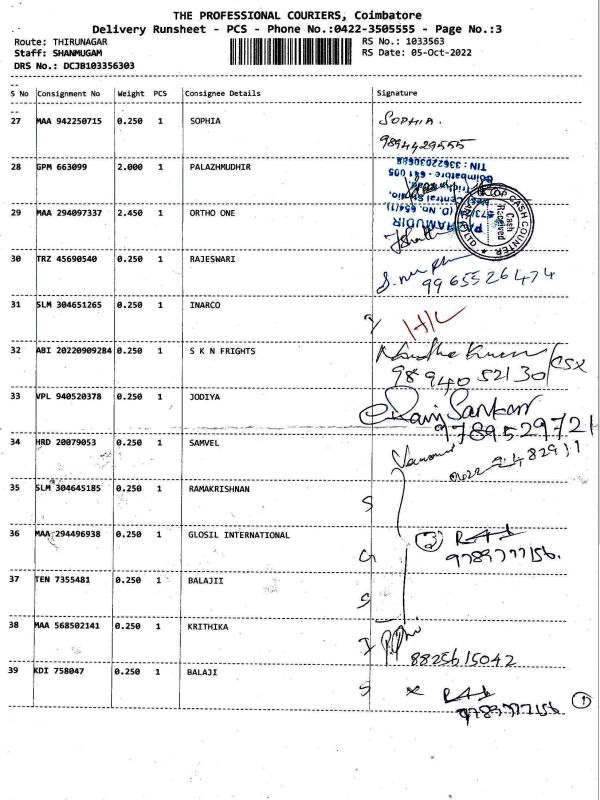 THE PROFESSIONAL COURIERS, Coimbatore
Delivery Runsheet - PCS - Phone No.:0422-3505555 - Page No.:3
Route: THIRUNAGAR
RS No.: 1033563
Staff: SHANMUGAM
RS Date: 05-Oct-2022
DRS No.: DCJB103356303
S No Consignment No Weight PCS Consignee Details Signature
27 MAA 942250715 0.250 1 SOPHIA SOPHIA.
9894429555
28 GPM 663099 2.000 1 PALAZHMUDHIR
TIN : 33622030688
Coimbatore - 641 005
29 MAA 294097337 2.450 1 ORTHO ONE
CASH COUNTER
Cash
Received
30 TRZ 45690540 0.250 1 RAJESWARI
9965526474
31 SLM 304651265 0.250 1 INARCO
H/L
32 ABI 20220909284 0.250 1 S K N FRIGHTS
98940 52130
33 VPL 940520378 0.250 1 JODIYA
Ravi Sankar
9789529721
34 HRD 20079053 0.250 1 SAMVEL
35 SLM 304645185 0.250 1 RAMAKRISHNAN S
36 MAA 294496938 0.250 1 GLOSIL INTERNATIONAL G
9789777156.
37 TEN 7355481 0.250 1 BALAJII S
38 MAA 568502141 0.250 1 KRITHIKA I
8825615042
39 KDI 758047 0.250 1 BALAJI S
9789777156